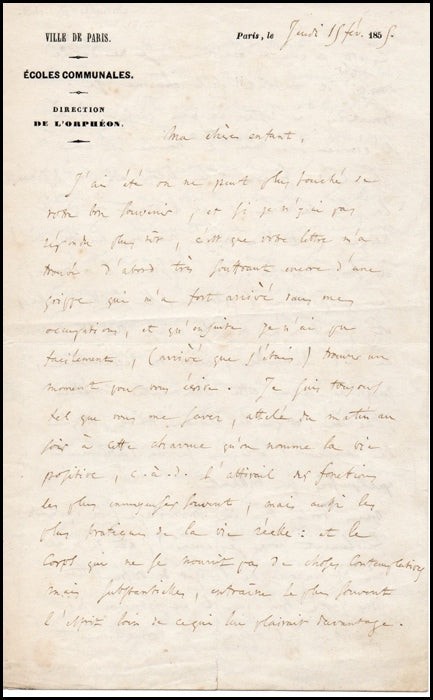 VILLE DE PARIS.
ÉCOLES COMMUNALES.
DIRECTION
DE L'ORPHÉON.
Paris, le Jeudi 15 fév. 1855.
Ma chère enfant,
J'ai été on ne peut plus touché de
votre bon souvenir, et si je n'y ai pas
répondu plus tôt, c'est que votre lettre m'a
trouvé d'abord très souffrant encore d'une
grippe qui m'a fort arriéré dans mes
occupations, et qu'ensuite je n'ai pu
facilement, (arriéré que j'étais) trouver un
moment pour vous écrire. Je suis toujours
tel que vous me savez, attelé du matin au
soir à cette charrue qu'on nomme la vie
positive, c.à.d. l'attirail des fonctions
les plus ennuyeuses souvent, mais aussi les
plus pratiques de la vie réelle : et le
corps qui ne se nourrit pas de choses contemplatives
mais substantielles, entraîne le plus souvent
l'esprit loin de ce qui lui plairait davantage.